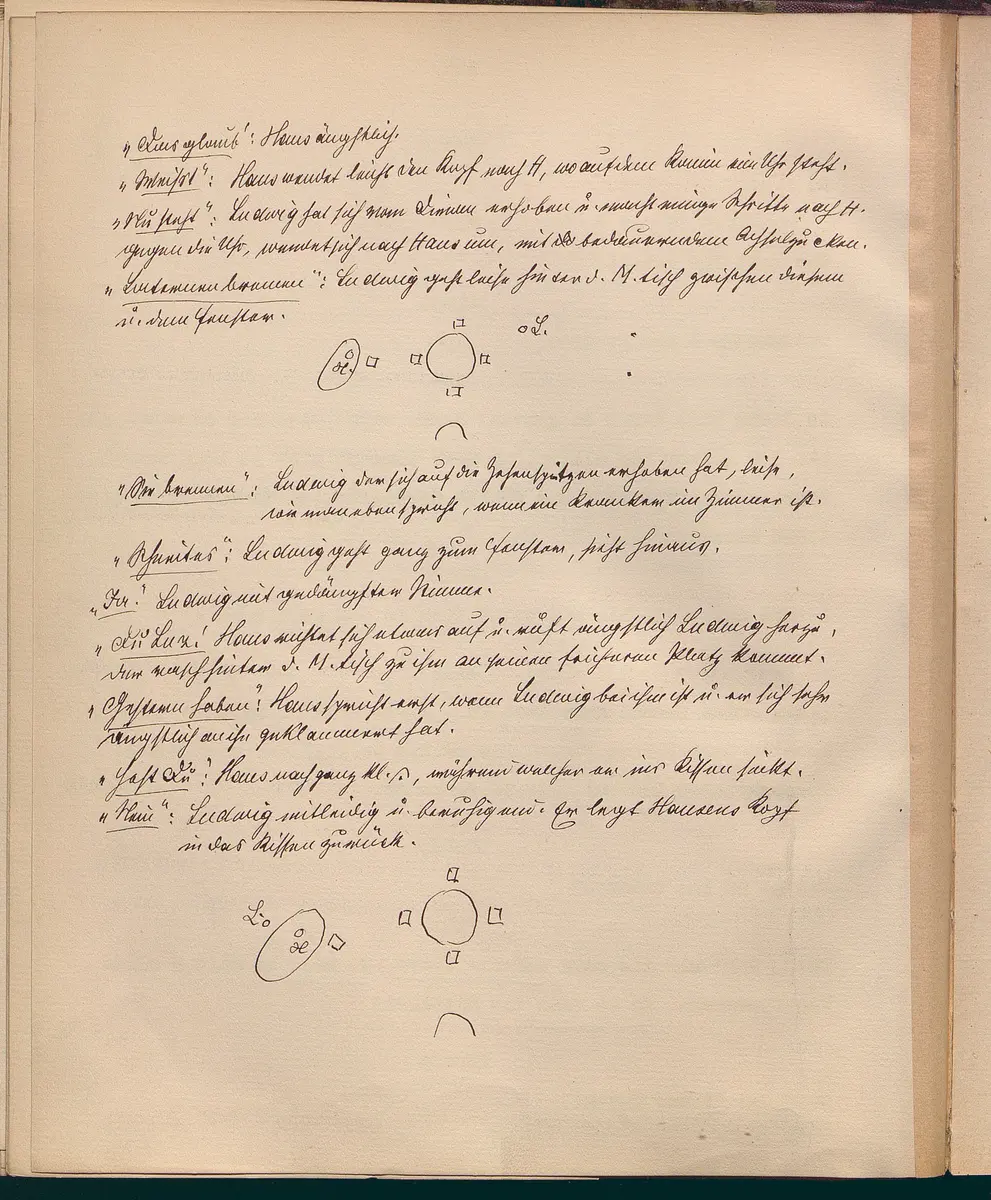 „Das glaub": Hans ängstlich.
„Weißt": Hans wendet leicht den Kopf nach H, wo auf dem Kamin eine Uhr steht.
„Nu steht": Ludwig hat sich vom Divan erhoben u. macht einige Schritte nach H.
gegen die Uhr, wendet sich nach Hans um, mit bedauerndem Achselzucken.
„Laternen brennen": Ludwig geht leise hinter d. M. tisch zwischen diesem
u. dem Fenster.
L.
H.
„Sie brennen": Ludwig der sich auf die Zehenspitzen erhoben hat, leise,
wie man eben spricht, wenn ein Kranker im Zimmer ist.
„Schneites": Ludwig geht ganz zum Fenster, sieht hinaus.
„Ja." Ludwig mit gedämpfter Stimme.
„Du Luz! Hans richtet sich etwas auf u. ruft ängstlich Ludwig herzu,
der rasch hinter d. M. tisch zu ihm an seinen früheren Platz kommt.
„Gestern haben": Hans spricht erst, wenn Ludwig bei ihm ist u. er sich sehr
ängstlich an ihn geklammert hat.
„Hast Du": Hans nach ganz kl. , während welcher er ins Kissen sinkt.
„Nein": Ludwig mitleidig u. beruhigend. Er legt Hansens Kopf
in das Kissen zurück.
L.
H